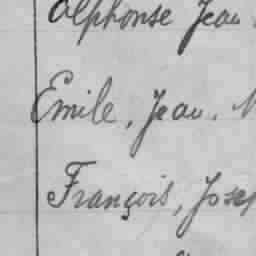 Alphonse Jean
Emile, Jean,
François, Josep